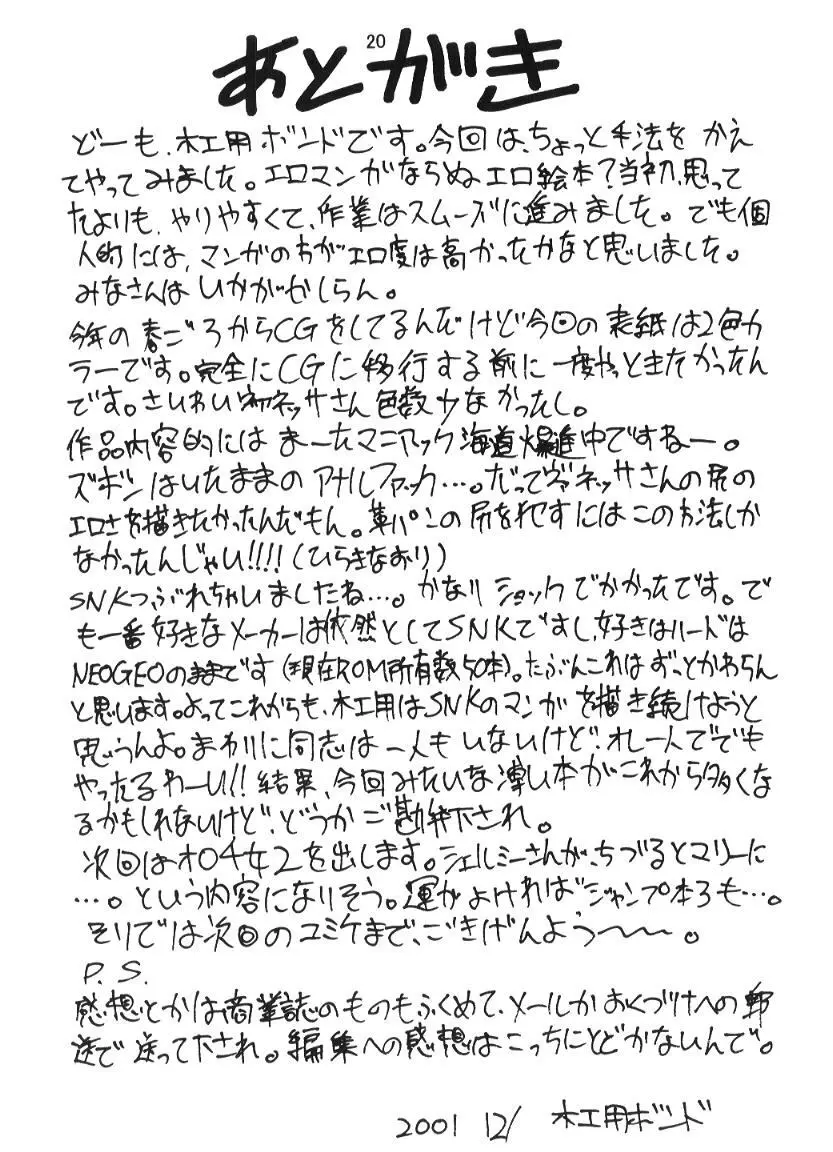 20
あとがき
どーも、木工用ボンドです。今回は、ちょっと手法をかえ
てやってみました。エロマンガならぬエロ絵本?当初、思って
たよりも、やりやすくて、作業はスムーズに進みました。でも個
人的には、マンガの方がエロ度は高かったかなと思いました。
みなさんはいかがかしらん。
今年の春ごろからCGをしてるんだけど今回の表紙は2色カ
ラーです。完全にCGに移行する前に一度やっときたかったん
です。さいわいヴァネッサさん色数少なかったし。
作品内容的にはまーたマニアック海道爆進中ですねー。
ズボンはいたままのアナルファック…。だってヴァネッサさんの尻の
エロさを描きたかったんだもん。革パンの尻を犯すにはこの方法しか
なかったんじゃい!!!!(ひらきなおり)
SNKつぶれちゃいましたね…。かなりショックでかかったです。で
も一番好きなメーカーは依然としてSNKですし、好きなハードは
NEOGEOのままです(現在ROM所有数50本)。たぶんこれはずっとかわらん
と思います。よってこれからも、木工用はSNKのマンガを描き続けようと
思うんよ。まわりに同志は一人もいないけど、オレ一人ででも
やったるわーい!!結果、今回みたいな薄い本がこれから多くな
るかもしれないけど、どうかご勘弁下され。
次回はオロチ女2を出します。シェルミーさんが、ちづるとマリーに
…。という内容になりそう。運がよければジャンプ本3も…。
それでは次回のコミケまで、ごきげんよう〜〜。
P.S.
感想とかは商業誌のものもふくめて、メールかおくづけへの郵
送で送って下され。編集への感想はこっちにとどかないんで。
2001 12/ 木工用ボンド